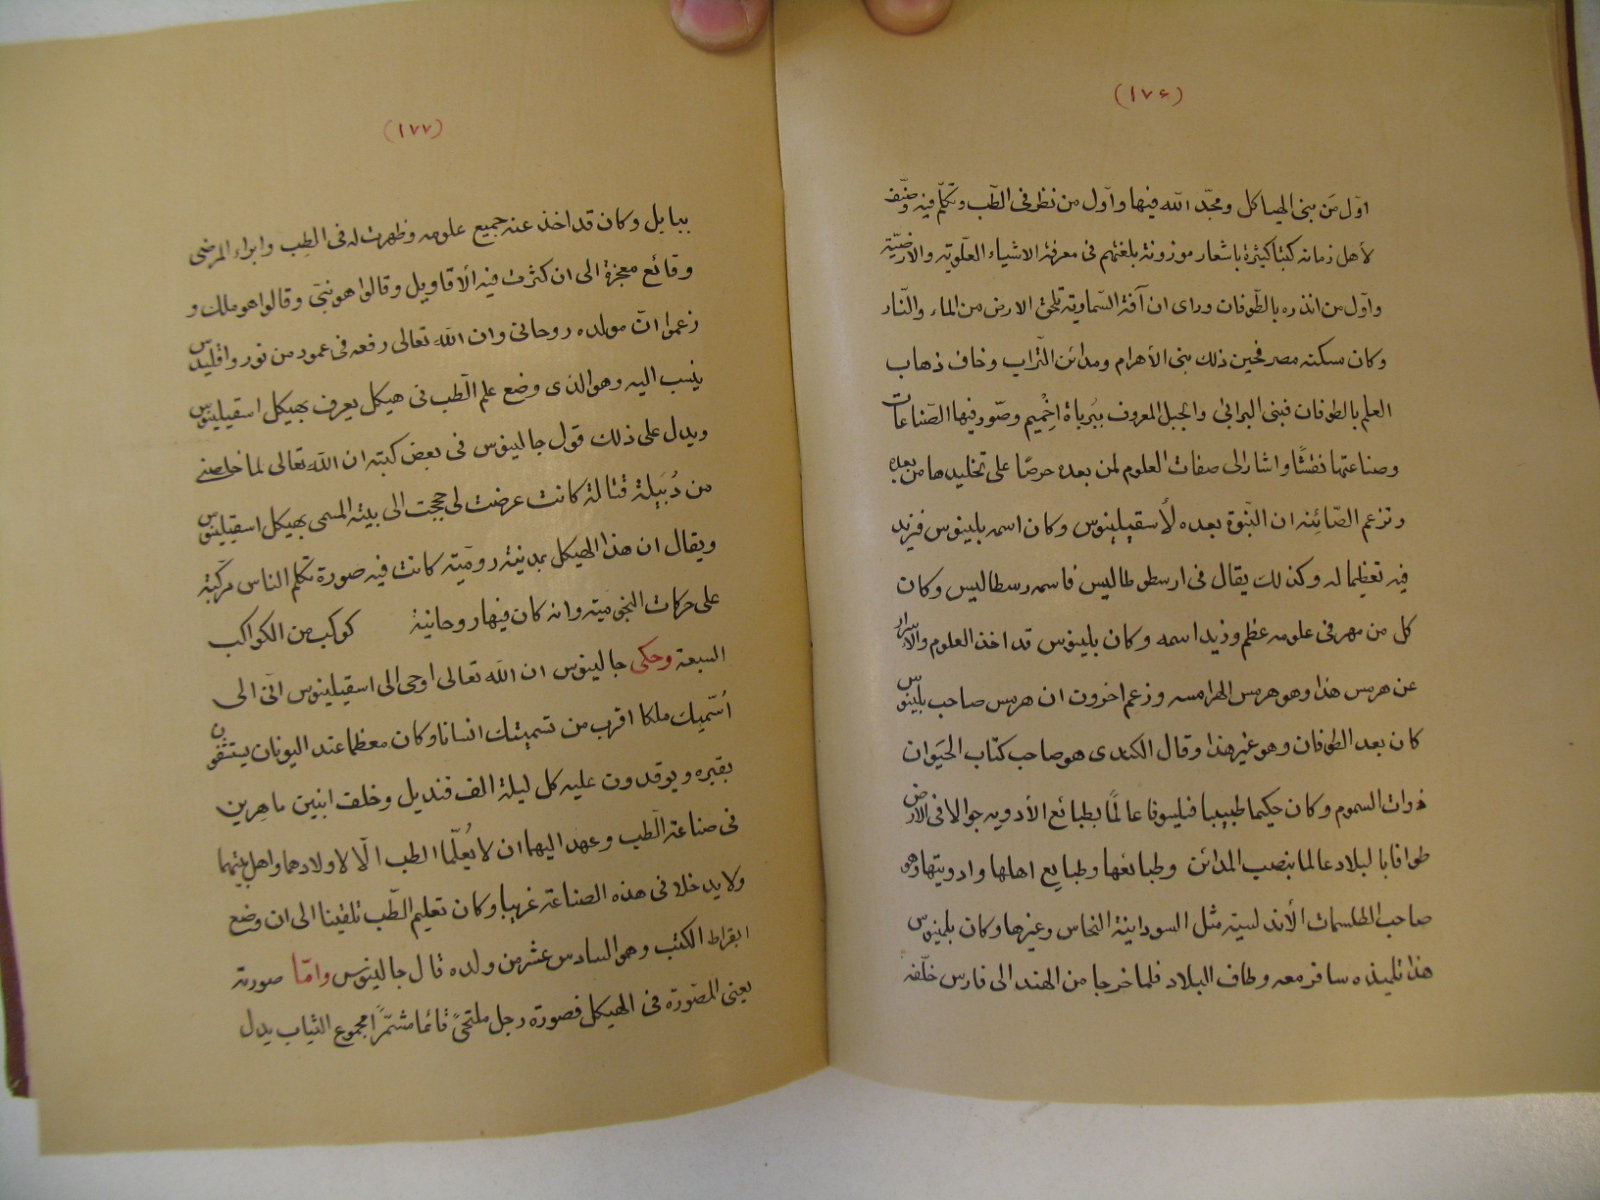 (۱۷۶)
اوّل من بنى الهياكل ومجّد الله فيها واوّل من نظر فى الطّب وتكلّم فيه وصنّف
لأهل زمانه كتبا كثيرة باشعار موزونة بلغتهم فى معرفة الاشياء العلّويّه والارضيّة
واوّل من انذره بالطّوفان وراى ان آفة السّماويّه تلحق الارض من الماء والنّار
وكان سكنه مصر فحين ذلك بنى الأهرام ومدائن التّراب وخاف ذهاب
العلم بالطوفان فبنى البرابى والجبل المعروف ببُرباة اخْميم وصوّر فيها الصّناعات
وصناعتها نقشًا واشار الى صفات العلوم لمن بعده حرصًا على تخليدها من بعده
وتزعم الصّائبه ان النبوّة بعده لأسقيلينوس وكان اسمه بلينوس فزيد
فيه تعظيما له وكذلك يقال فى ارسطوطاليس فاسمه رسطاليس وكان
كل من مهر فى علومه عظم وزيد اسمه وكان بلينوس قد اخذ العلوم والاسرار
عن هرمس هذا وهو هرمس الهرامسه وزعم اخرون ان هرمس صاحب بلينوس
كان بعد الطوفان وهو غير هذا وقال الكندى هو صاحب كتاب الحيَوان
ذوات السموم وكان حكيما طبيبا فيلسوفا عالمًا بطبائع الأدويه جوالا فى الارض
طوافا بالبلاد عالما بنصب المدائن وطبائعها وطبايع اهلها وادويتها وهو
صاحب الطلسمات الأندلسيّه مثل السودانية النحاس وغيرها وكان بلينوس
هذا تليذه سافر معه وطاف البلاد فلما خرجا من الهند الى فارس خلّفه
(۱۷۷)
ببابل وكان قد اخذ عنه جميع علومه وظهرت له فى الطِب وابراء المرضى
وقائع معجزة الى ان كثرت فيه الأقاويل وقالوا هو نبىّ وقالوا هو ملك و
زعموا انّ مولده روحانى وان الله تعالى رفعه فى عمود من نور واقليدس
ينسب اليه وهو الذى وضع علم الّطب فى هيكل يعرف بهيكل اسقيلينوس
ويدل على ذلك قول جالينوس فى بعض كتبه ان الله تعالى لما خلصنے
من دُبَيلة قتالة كانت عرضت لى حججت الى بيته المسمى بهيكل اسقيلينوس
ويقال ان هذا الهيكل بمدينة روميّه كانت فيه صورة تكلم الناس مركّبة
على حركات النجوميّه وانه كان فيها روحانية كوكب من الكواكب
السبعة وحكى جالينوس ان الله تعالى اوحى الى اسقيلينوس انّى الى
اُسمّيك ملكا اقرب من تسميتك انسانا وكان معظما عند اليونان يستشقون
بقبره ويوقدون عليه كل ليلة الف قنديل وخلف ابنين ماهرين
فى صناعة الّطب وعهد اليهما ان لا يُعلّما الطب الّا لاولادهما واهل بيتهما
ولا يدخلا فى هذه الصناعة غريبا وكان تعليم الّطب تلقينا الى ان وضع
ابقراط الكتب وهو السادس عشر من ولده قال جالينوس وامّا صورته
يعنى المصّورة فى الهيكل فصورة رجل ملتحىً قائما مشمّرًا مجموع الثياب يدل